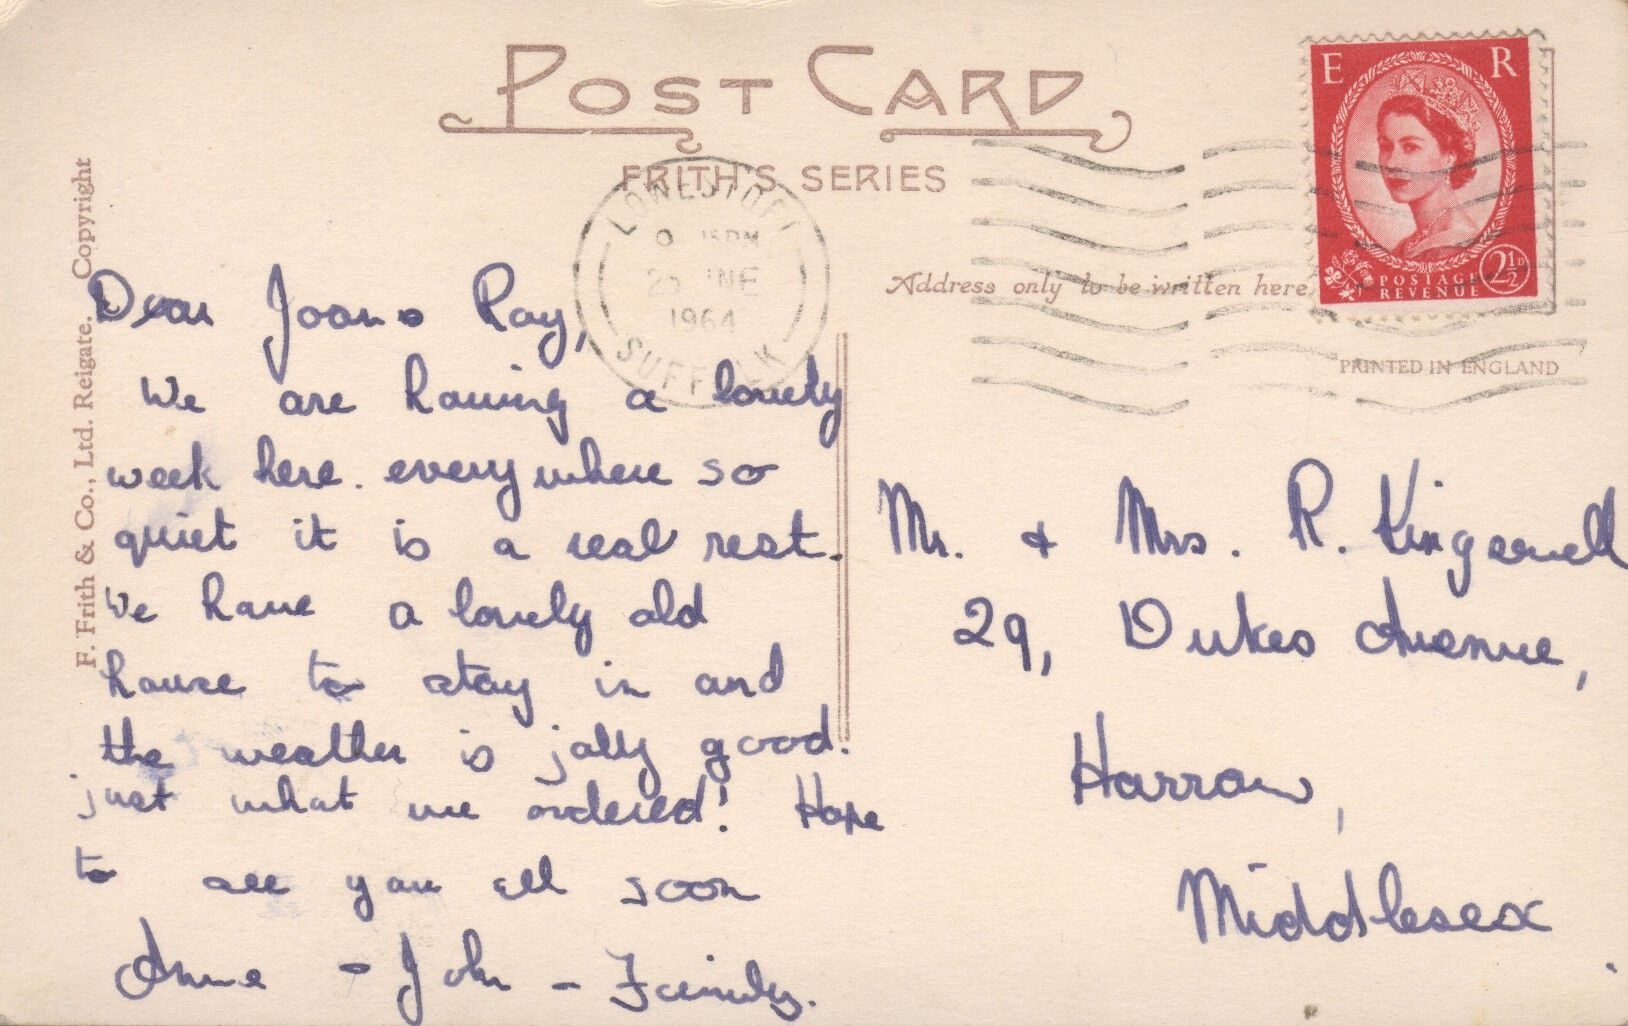 POST CARD
FRITH'S SERIES
E R
POSTAGE
REVENUE
2½D
LOWESTOFT
PM
NE
1964
SUFFOLK
Address only to be written here
PRINTED IN ENGLAND
F. Frith & Co., Ltd. Reigate. Copyright
Dear Joan & Ray,
We are having a lovely
week here. everywhere so
quiet it is a real rest.
We have a lovely old
house to stay in and
the weather is jolly good.
just what we ordered! Hope
to see you all soon
Anne - John - Family.
Mr. & Mrs. R. Kingswell
29, Dukes Avenue,
Harrow,
Middlesex